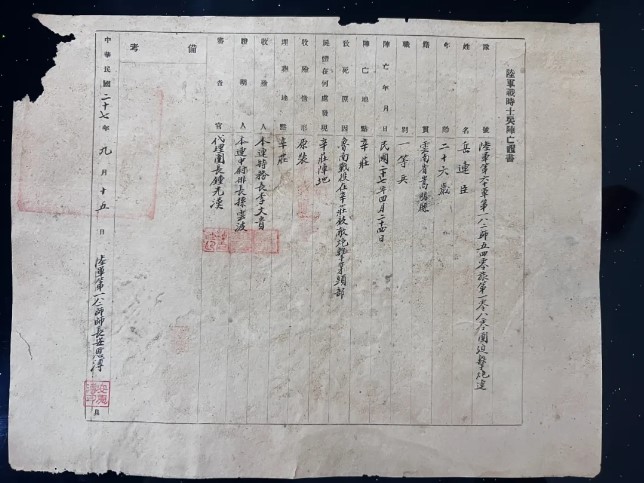 陸軍戰時士兵陣亡證書
隊號 陸軍第六十軍第一八二師五四零旅第一零八零團迫擊炮連
姓名 岳連臣
年齡 二十六歲
籍貫 雲南省嵩明縣
職別 一等兵
陣亡年月日 民國二十七年四月二十四日
陣亡地點 辛莊
致死原因 魯南戰役在辛莊被敵炮彈擊穿頭部
屍體在何處發現 辛莊陣地
收殮情形 原裝
埋葬地點 辛莊
收殮人 本連特務長李文貴
證明人 本連中尉排長
審查官 代理團長鍾光漢
備考
中華民國二十七年九月十五日
陸軍第一八二師師長安恩溥
具